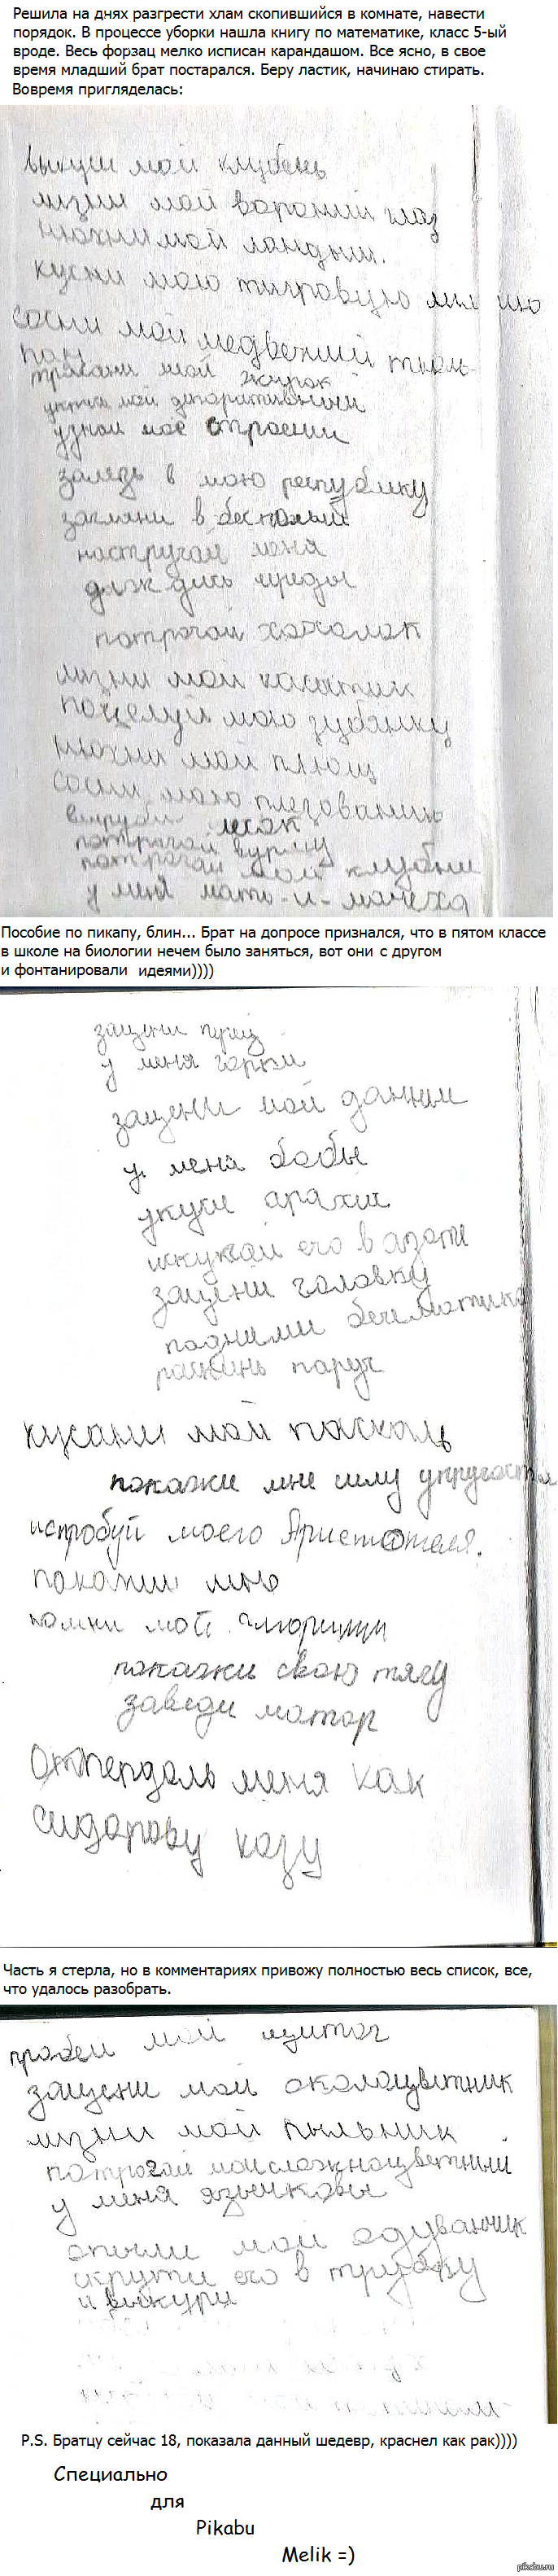 Решила на днях разгрести хлам скопившийся в комнате, навести
порядок. В процессе уборки нашла книгу по математике, класс 5-ый
вроде. Весь форзац мелко исписан карандашом. Все ясно, в свое
время младший брат постарался. Беру ластик, начинаю стирать.
Вовремя пригляделась:
выкуси мой клубень
лизни мой вороний глаз
нюхни мой ландыш.
кусни мою тигровую
сосни мой медвежий
мой
мой декоративный
узнай моё строение
залезь в мою республику
загляни в
настругай меня
дождись среды
потрогай хохолок
лизни мой касатик
поцелуй мою зубянку
нюхни мой плющ
сосни мою
вырви
потрогай
потрогай мои клубни
у меня мать-и-мачеха
Пособие по пикапу, блин... Брат на допросе признался, что в пятом классе
в школе на биологии нечем было заняться, вот они с другом
и фонтанировали идеями))))
зацени прыщ
у меня горки
зацени мой донник
у меня бобы
укуси арахис
искупай его в азоте
зацени головку
подними бегемотика
раскинь парус
кусани мой паскаль
покажи мне силу упругости
испробуй моего Аристотеля.
покажи мне
помни мой
покажи свою тягу
заведи мотор
Отпердоль меня как
сидорову козу
Часть я стерла, но в комментариях привожу полностью весь список, все,
что удалось разобрать.
пробей мой щиток
зацени мой околоцветник
лизни мой пыльник
потрогай мой сложноцветный
у меня язычковые
опыли мой одуванчик
скрути его в трубку
и выкури
P.S. Братцу сейчас 18, показала данный шедевр, краснел как рак))))
Специально
для
Pikabu
Melik =)
pikabu.ru